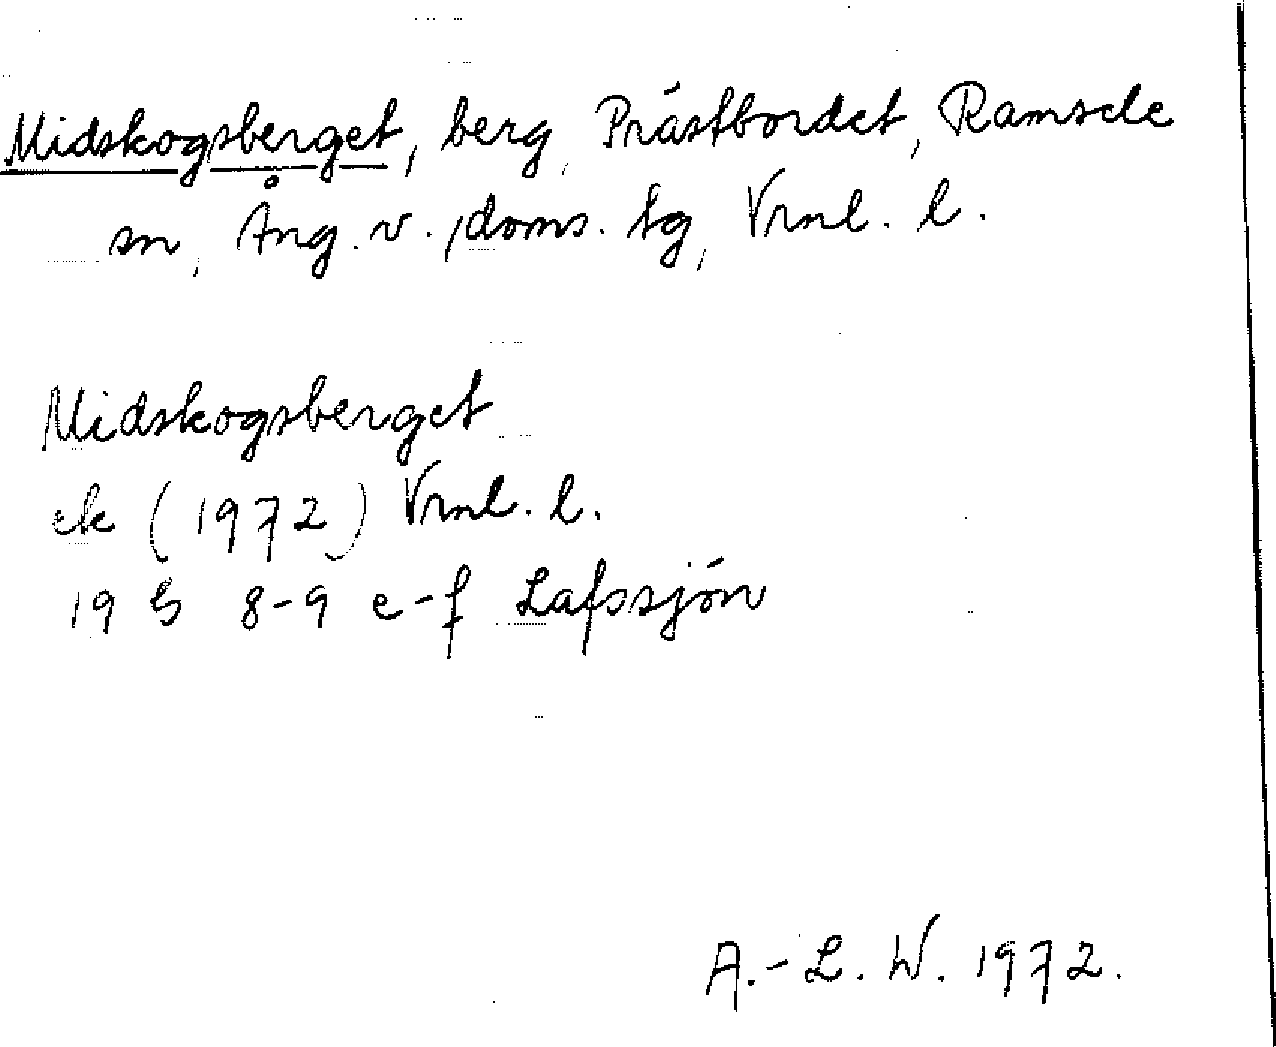 Midskogsberget, berg, Prästbordet, Ramsele
sn, Ång. v., doms. tg, Vrml. l.
Midskogsberget
ek (1972) Vrml. l.
19 G 8-9 e-f Lafssjön
A.-L. W. 1972.